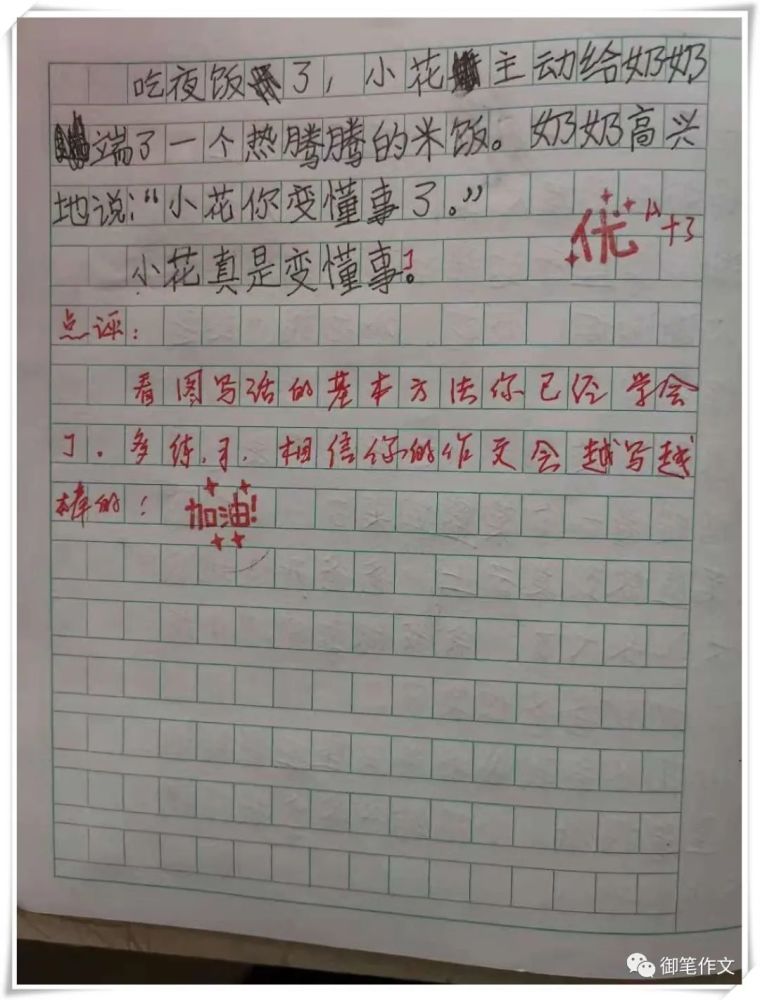 吃夜饭了，小花主动给奶奶
端了一个热腾腾的米饭。奶奶高兴
地说：“小花你变懂事了。”
优 +3
小花真是变懂事了。
点评：
看图写话的基本方法你已经学会
了。多练习，相信你的作文会越写越
棒的！ 加油！
御笔作文